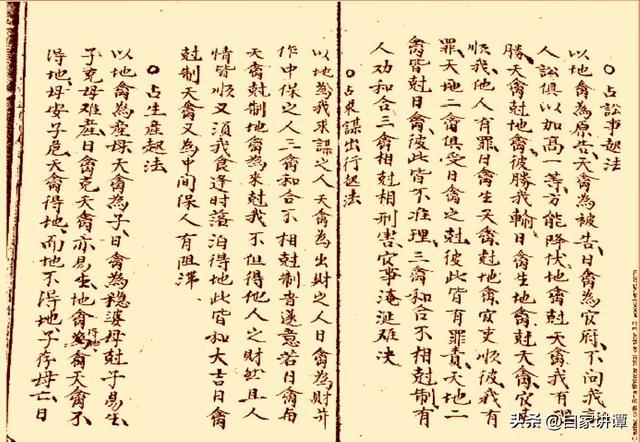 ○占訟事起法
以地禽為原告、天禽為被告、日禽為官府、不問我
人訟俱以加高一等、方能降伏、地禽尅天禽、我有
勝、天禽尅地禽、彼勝我輸、日禽生地禽、尅天禽、官吏
順我、他人有罪、日禽生天禽、尅地禽、官吏順彼、我有
罪、天地二禽俱受日禽之尅、彼此皆有罪責、天地二
禽皆尅日禽、彼此皆不准理、三禽和合不相尅制、有
人劝和合、三禽相尅相刑害、官事淹延难决
○占求謀出行起法
以地為我求謀之人、天禽為出財之人、日禽為財并
作中保之人、三禽和合不相尅制、皆遂意、若日禽与
天禽尅制地禽、為来尅我、不但得他人之財、然且人
情皆順、又須我食逢时落泊得地、此皆和大吉、日禽
尅制天禽、又為中間保人有阻滯、
○占生産起法
以地禽為産母、天禽為子、日禽為穏婆、母尅子易生、
子克母难産、日禽克天禽亦易生、地禽得地天禽不
得地、母安子危、天禽得地、而地不得地、子存母亡、日
头条 @白家讲谭